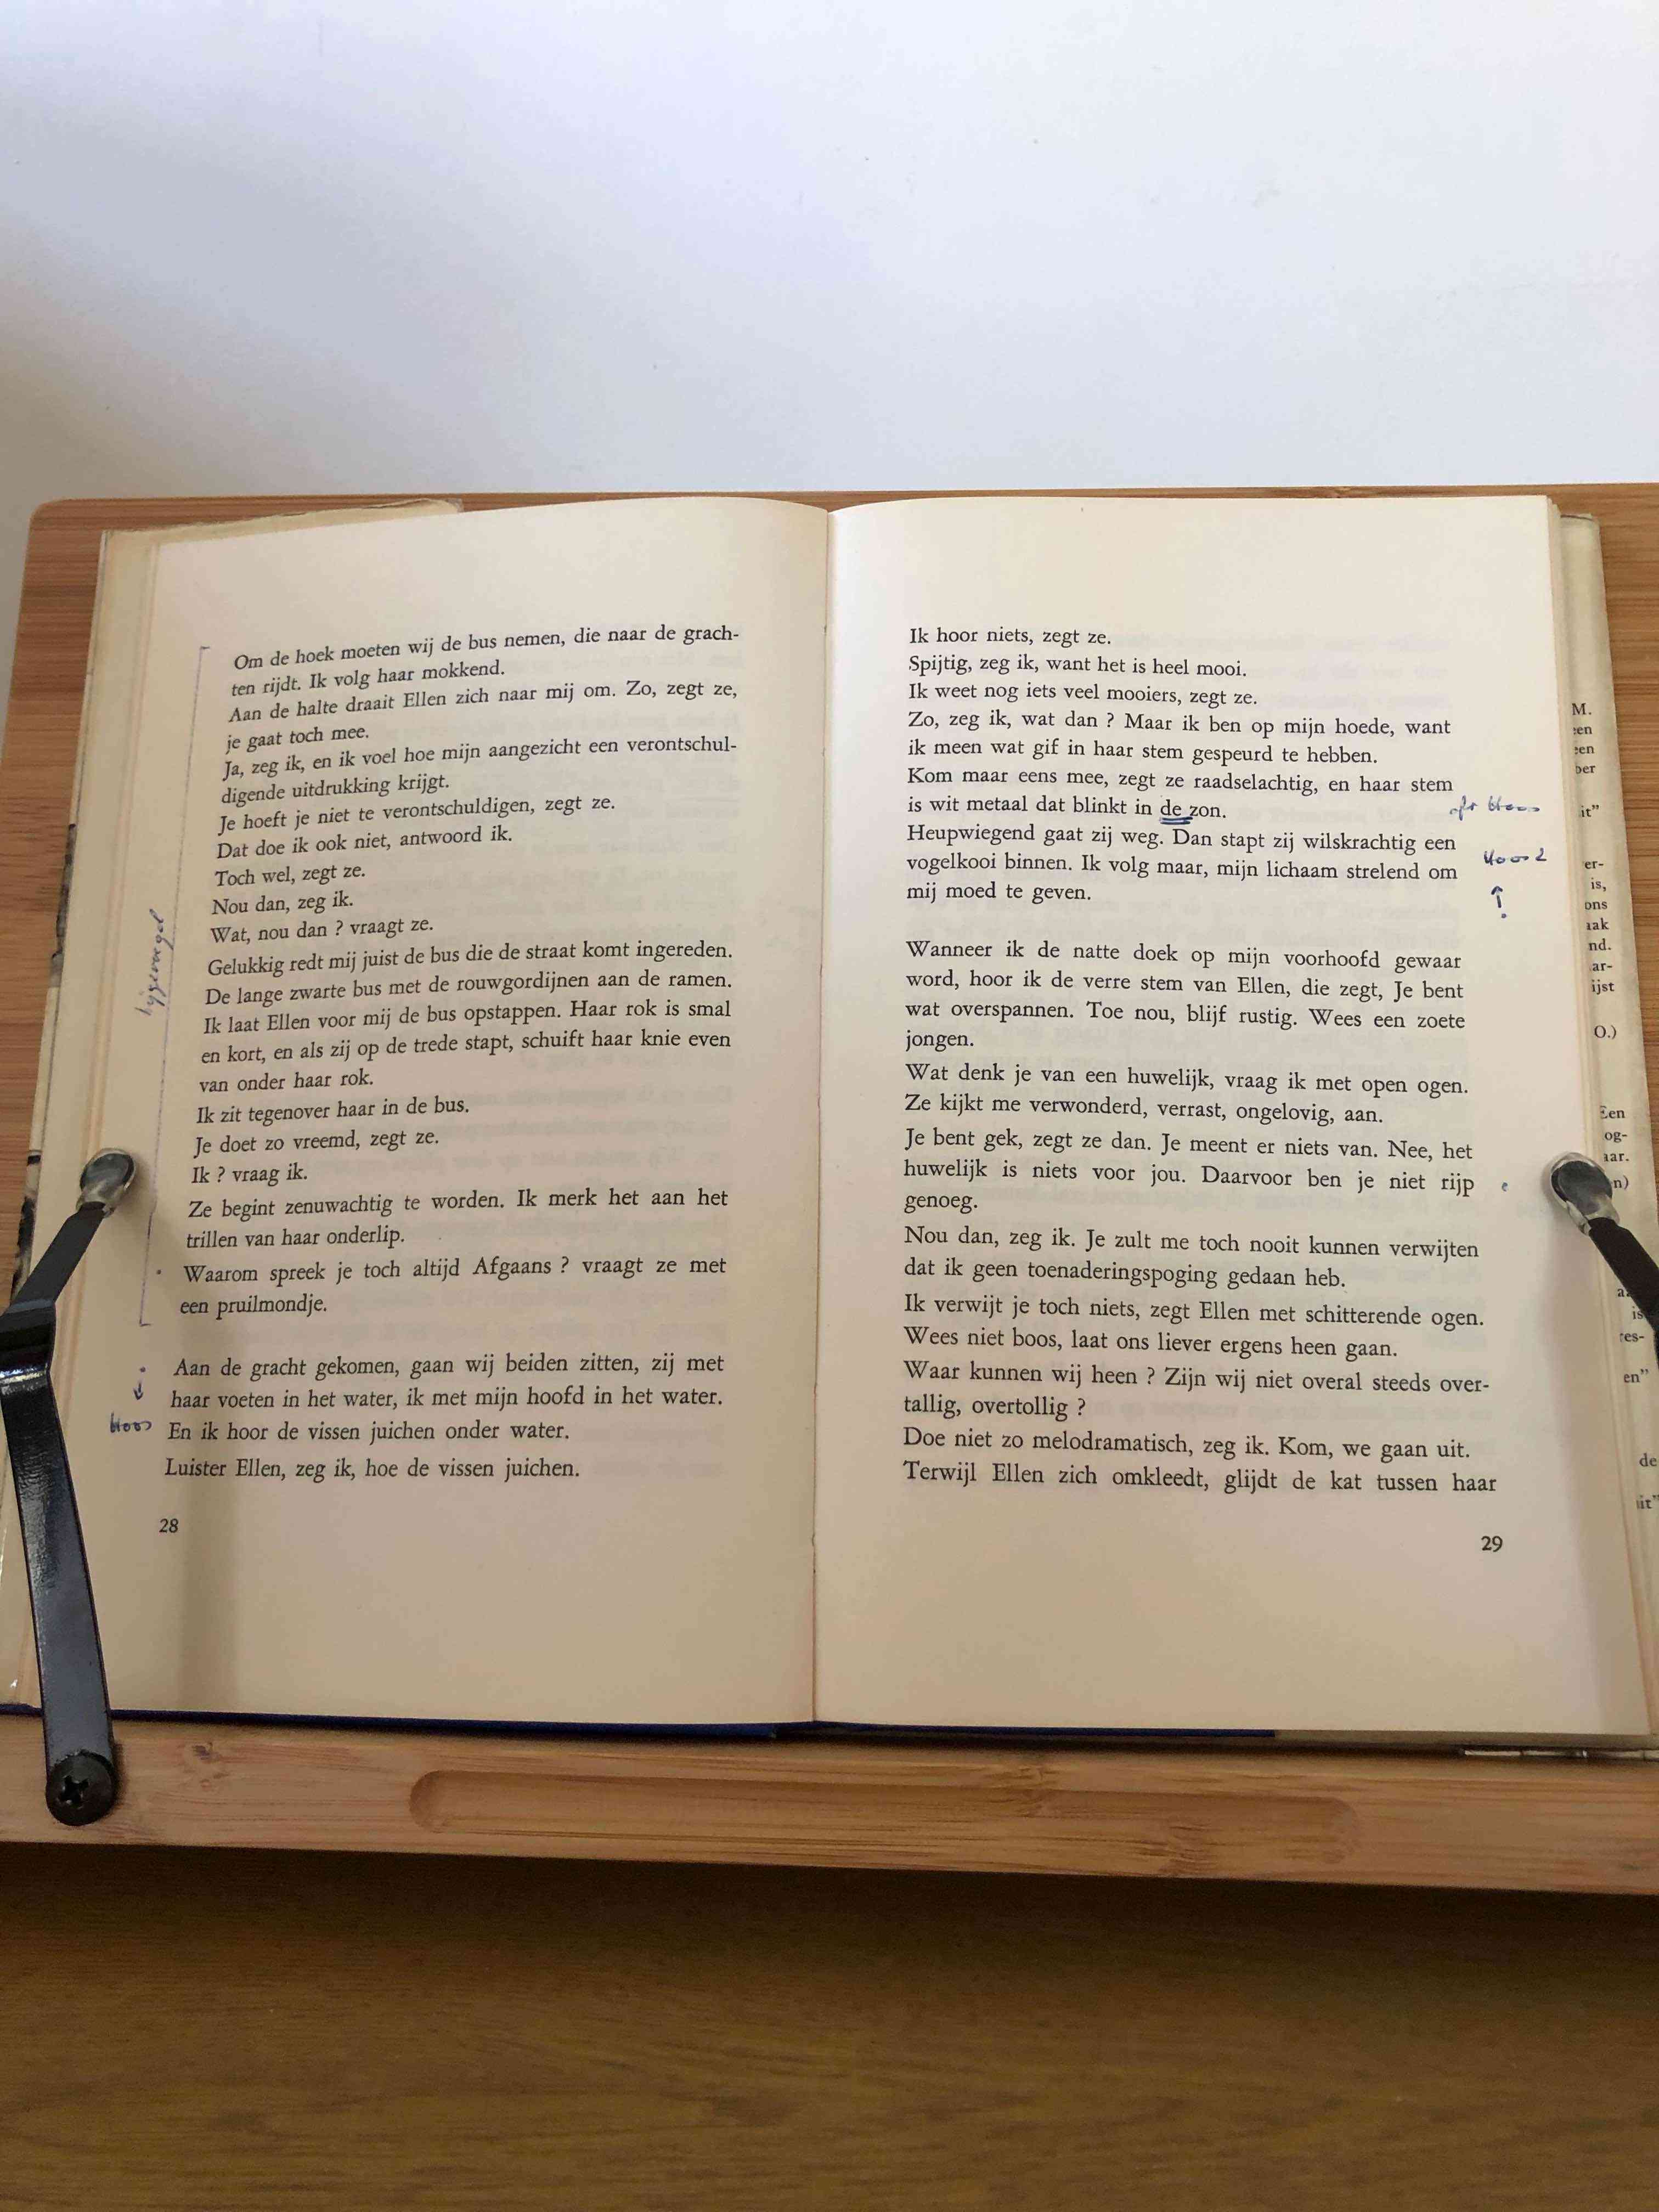 Om de hoek moeten wij de bus nemen, die naar de grach-
ten rijdt. Ik volg haar mokkend.
Aan de halte draait Ellen zich naar mij om. Zo, zegt ze,
je gaat toch mee.
Ja, zeg ik, en ik voel hoe mijn aangezicht een verontschul-
digende uitdrukking krijgt.
Je hoeft je niet te verontschuldigen, zegt ze.
Dat doe ik ook niet, antwoord ik.
Toch wel, zegt ze.
Nou dan, zeg ik.
Wat, nou dan ? vraagt ze.
Gelukkig redt mij juist de bus die de straat komt ingereden.
De lange zwarte bus met de rouwgordijnen aan de ramen.
Ik laat Ellen voor mij de bus opstappen. Haar rok is smal
en kort, en als zij op de trede stapt, schuift haar knie even
van onder haar rok.
Ik zit tegenover haar in de bus.
Je doet zo vreemd, zegt ze.
Ik ? vraag ik.
Ze begint zenuwachtig te worden. Ik merk het aan het
trillen van haar onderlip.
Waarom spreek je toch altijd Afgaans ? vraagt ze met
een pruilmondje.
Aan de gracht gekomen, gaan wij beiden zitten, zij met
haar voeten in het water, ik met mijn hoofd in het water.
En ik hoor de vissen juichen onder water.
Luister Ellen, zeg ik, hoe de vissen juichen.
28
Ik hoor niets, zegt ze.
Spijtig, zeg ik, want het is heel mooi.
Ik weet nog iets veel mooiers, zegt ze.
Zo, zeg ik, wat dan ? Maar ik ben op mijn hoede, want
ik meen wat gif in haar stem gespeurd te hebben.
Kom maar eens mee, zegt ze raadselachtig, en haar stem
is wit metaal dat blinkt in de zon.
Heupwiegend gaat zij weg. Dan stapt zij wilskrachtig een
vogelkooi binnen. Ik volg maar, mijn lichaam strelend om
mij moed te geven.
Wanneer ik de natte doek op mijn voorhoofd gewaar
word, hoor ik de verre stem van Ellen, die zegt, Je bent
wat overspannen. Toe nou, blijf rustig. Wees een zoete
jongen.
Wat denk je van een huwelijk, vraag ik met open ogen.
Ze kijkt me verwonderd, verrast, ongelovig, aan.
Je bent gek, zegt ze dan. Je meent er niets van. Nee, het
huwelijk is niets voor jou. Daarvoor ben je niet rijp
genoeg.
Nou dan, zeg ik. Je zult me toch nooit kunnen verwijten
dat ik geen toenaderingspoging gedaan heb.
Ik verwijt je toch niets, zegt Ellen met schitterende ogen.
Wees niet boos, laat ons liever ergens heen gaan.
Waar kunnen wij heen ? Zijn wij niet overal steeds over-
tallig, overtollig ?
Doe niet zo melodramatisch, zeg ik. Kom, we gaan uit.
Terwijl Ellen zich omkleedt, glijdt de kat tussen haar
29
M.
it"
er-
is,
ons
nd.
ar-
ijst
O.)
og-
en"
de